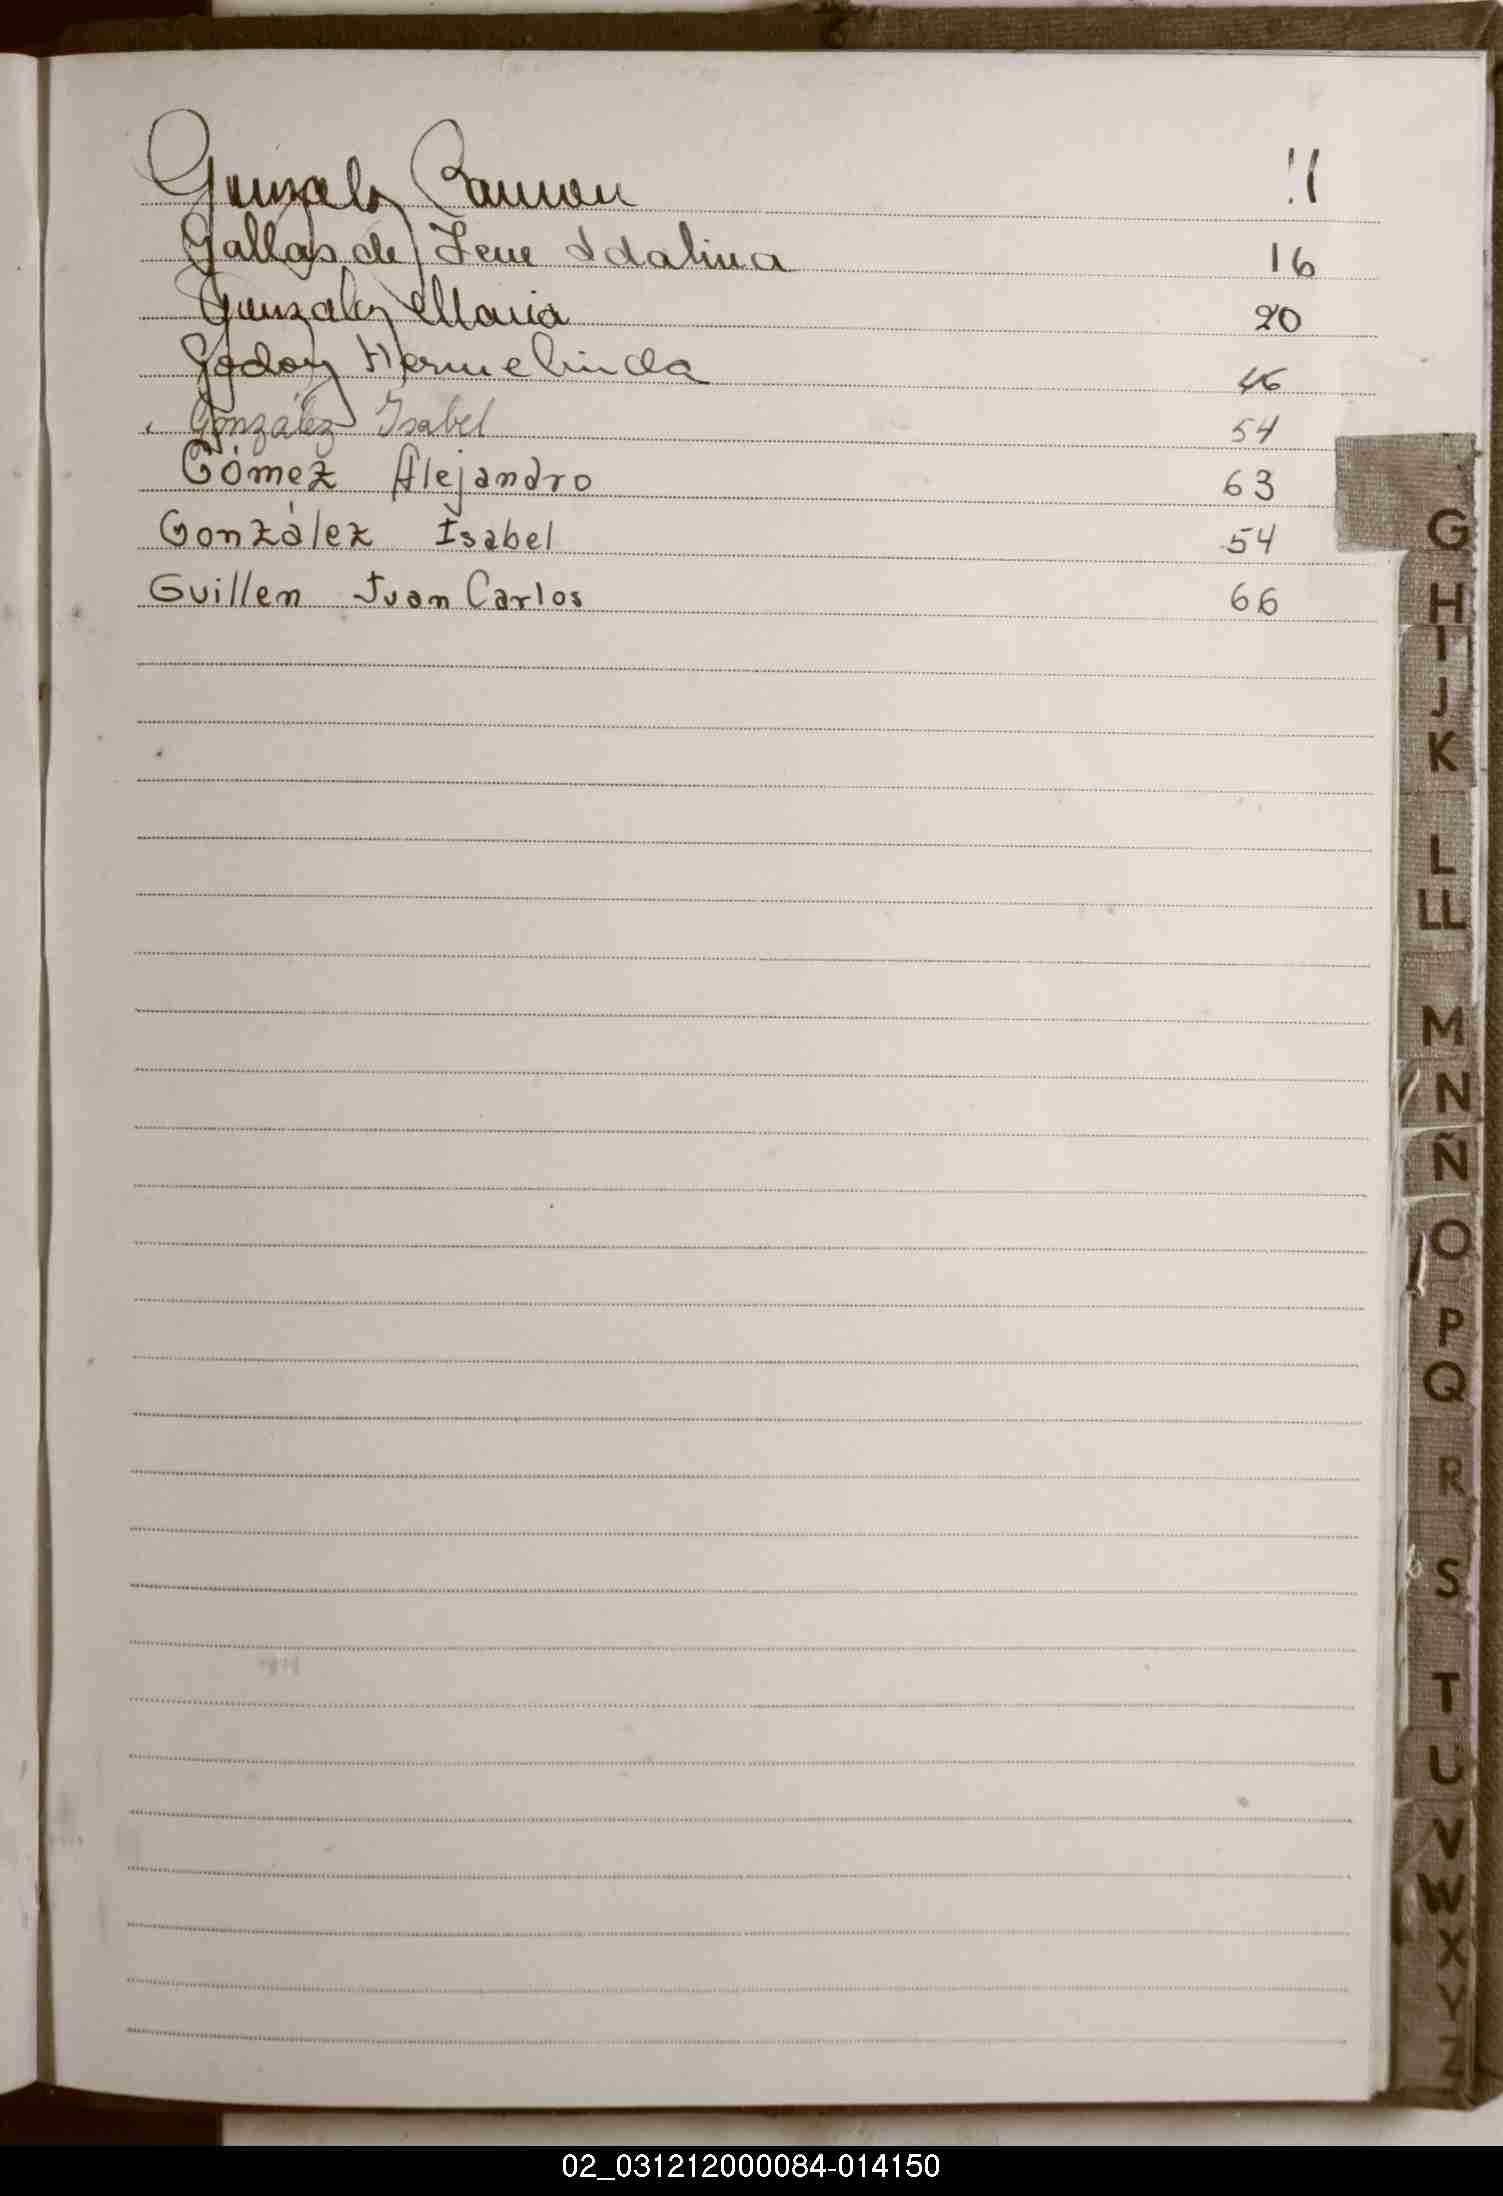 Gonzalez Ramon 11
Gallas de Idalina 16
Gonzalez Maria 20
Godoy Hermelinda 46
González Isabel 54
Gómez Alejandro 63
González Isabel 54
Guillen Juan Carlos 66
G
H
I
J
K
L
LL
M
N
Ñ
O
P
Q
R
S
T
U
V
W
X
Y
Z
02_031212000084-014150